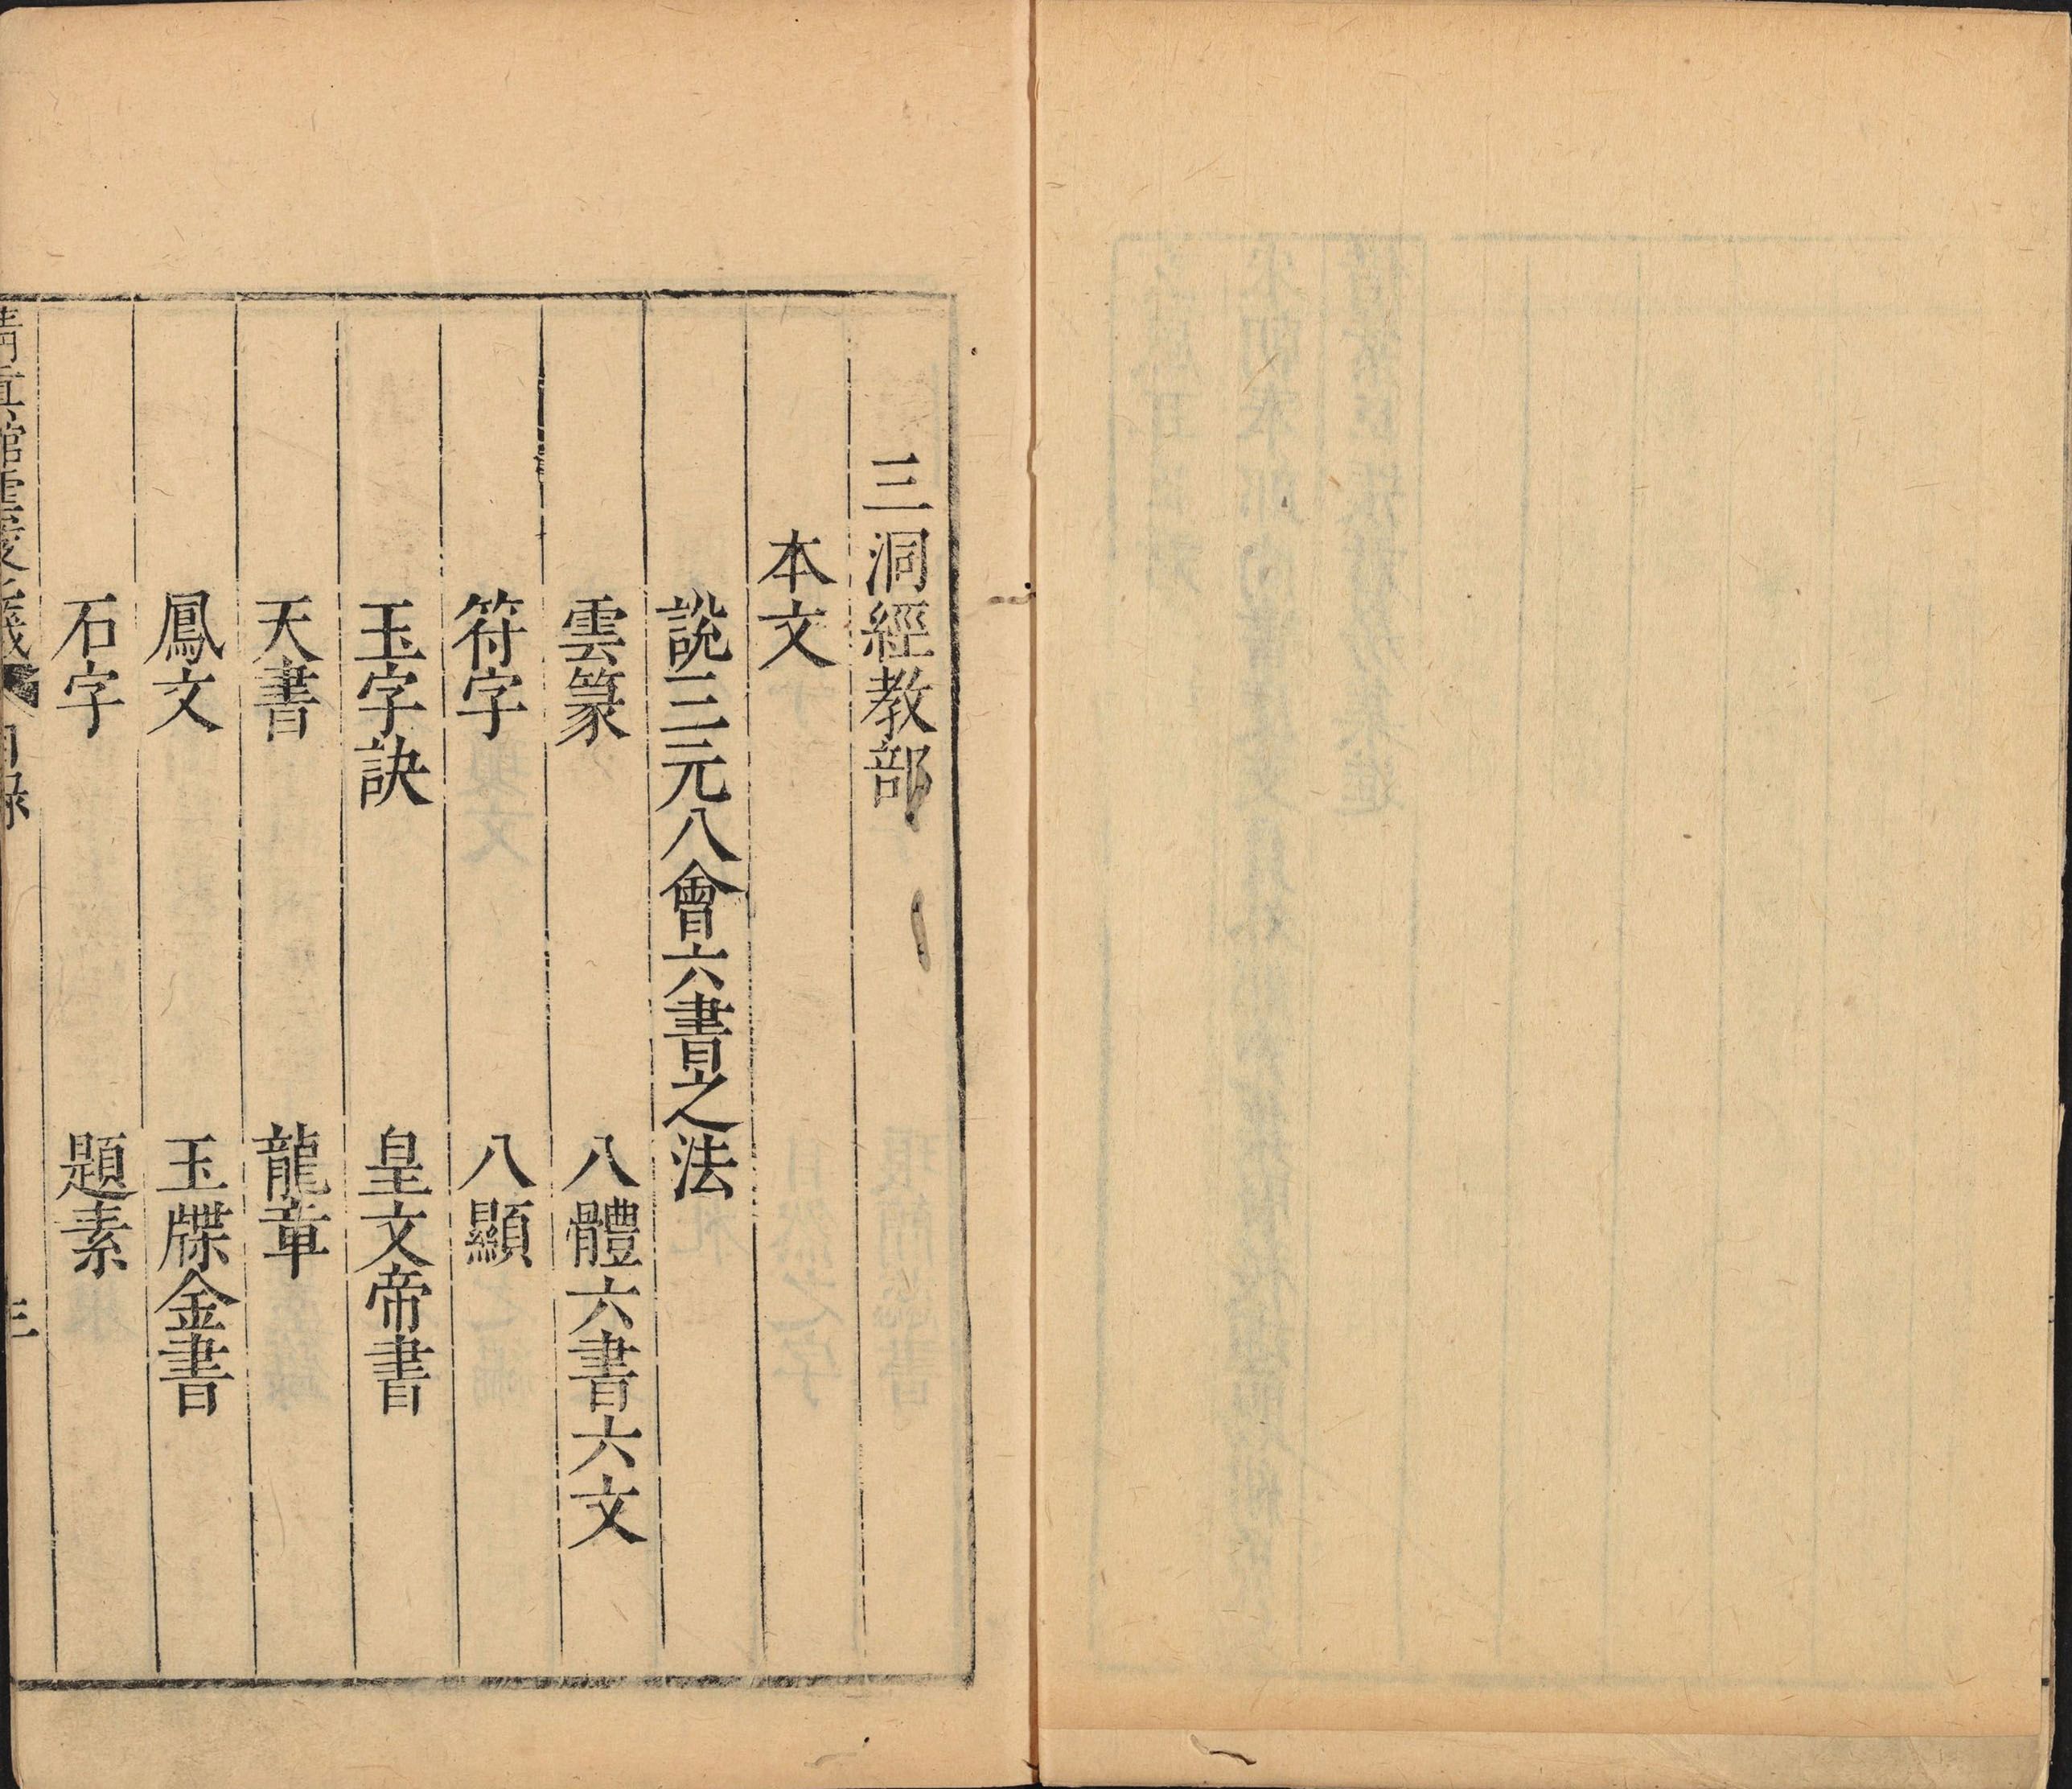 三洞經教部
本文
說三元八會六書之法
雲篆　八體六書六文
符字　八顯
玉字訣　皇文帝書
天書　龍章
鳳文　玉牒金書
石字　題素
清真館雲笈七籤　目錄　三